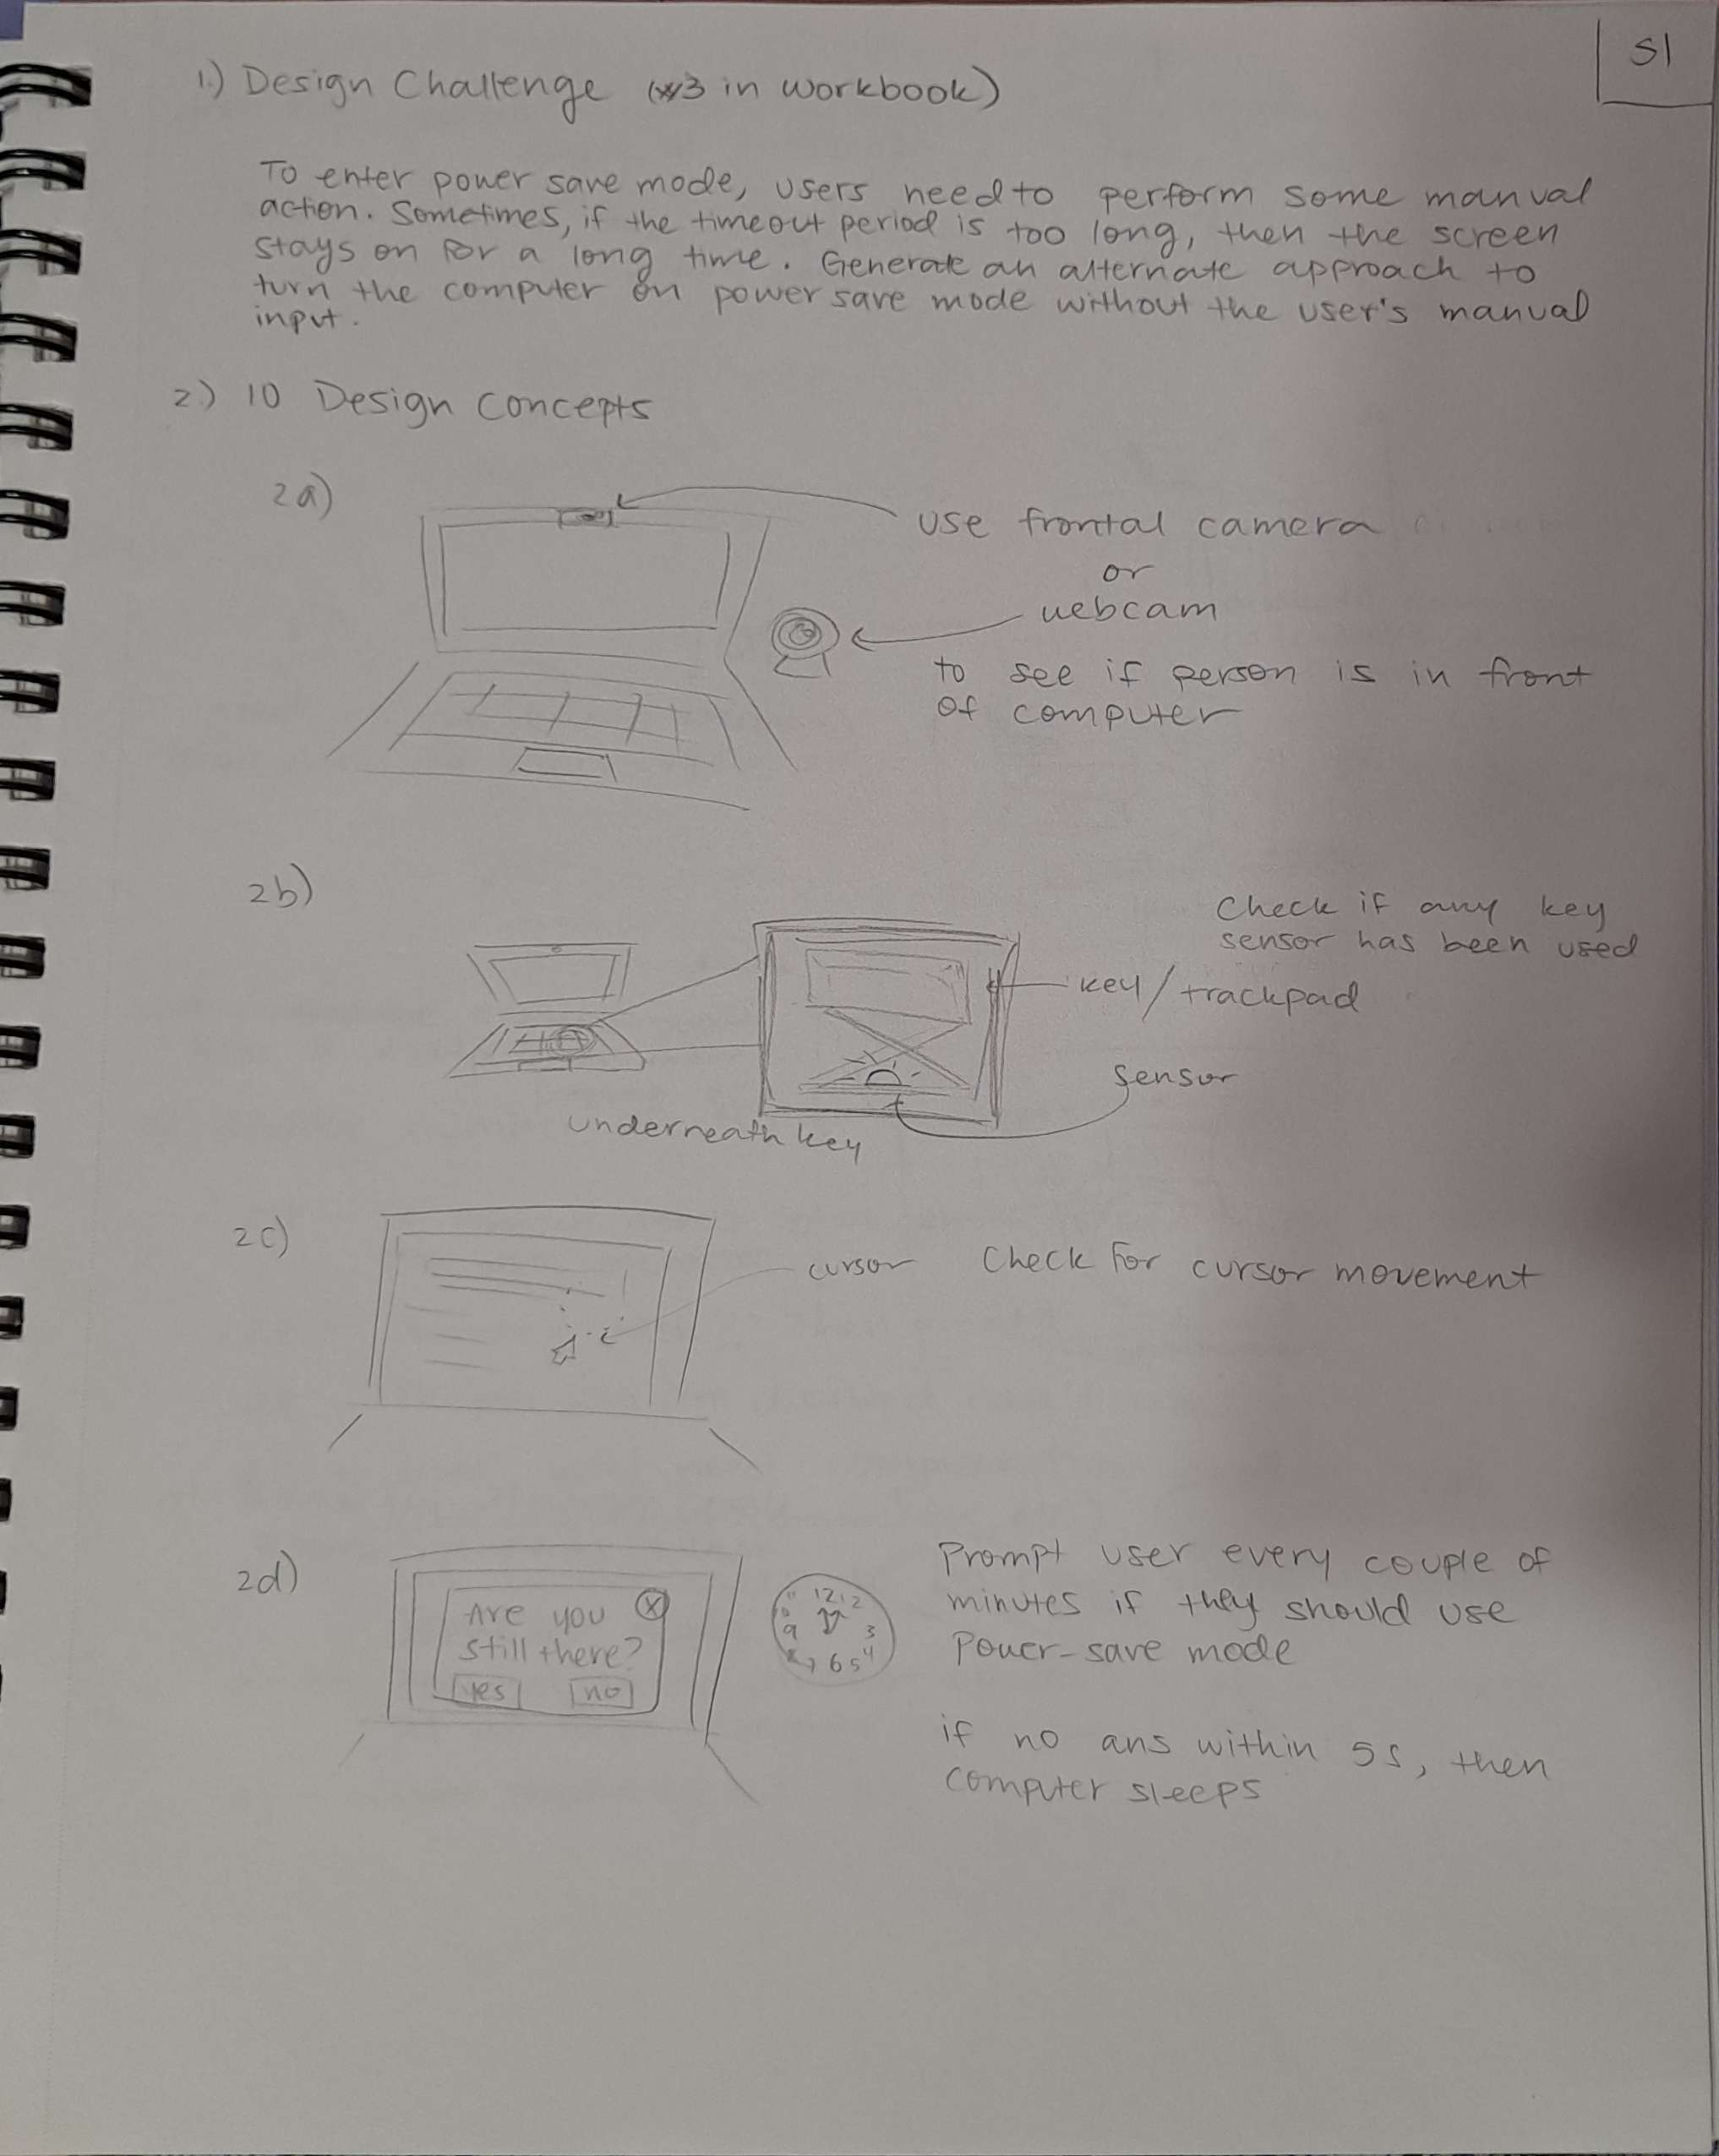 S1
1.) Design Challenge (#3 in workbook)
To enter power save mode, users need to perform some manual
action. Sometimes, if the timeout period is too long, then the screen
stays on for a long time. Generate an alternate approach to
turn the computer on power save mode without the user's manual
input.
2.) 10 Design Concepts
2a)
use frontal camera
or
webcam
to see if person is in front
of computer
2b)
Check if any key
sensor has been used
key/trackpad
sensor
underneath key
2c)
cursor
Check for cursor movement
2d)
Are you
still there?
yes no
12 1 2
9 3
6 5 4
Prompt user every couple of
minutes if they should use
Power-save mode
if no ans within 5s, then
computer sleeps